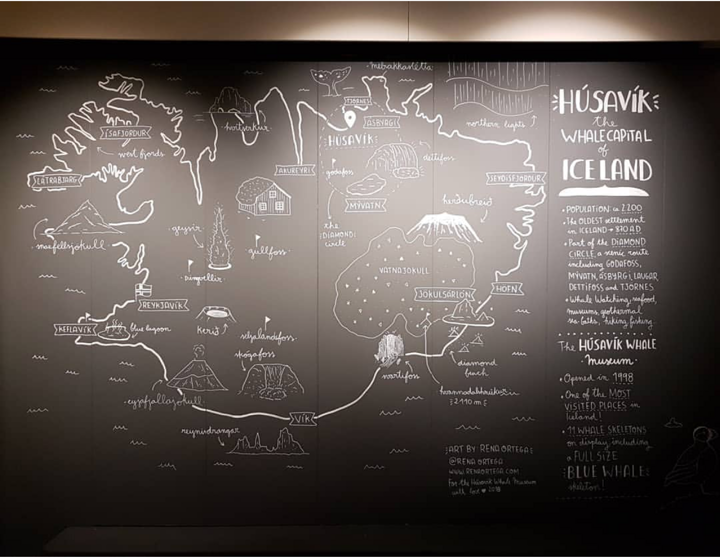 melrakkaslétta
TJÖRNES
ÁSBYRGI
HÚSAVÍK
hvítserkur
ÍSAFJÖRÐUR
west fjords
LÁTRABJARG
snæfellsjökull
AKUREYRI
godafoss
dettifoss
MÝVATN
the
(DIAMOND)
circle
northern lights
SEYDISFJORDUR
herðubreið
geysir
gullfoss
Þingvellir
VATNAJÖKULL
JÖKULSÁRLÓN
HÖFN
REYKJAVÍK
KEFLAVÍK
blue lagoon
kerið
seljalandsfoss
skógafoss
eyjafjallajökull
svartifoss
diamond
beach
hvannadalshnúkur
2110 m
VÍK
reynisdrangar
HÚSAVÍK
the
WHALE CAPITAL
of
ICELAND
• POPULATION: 2200
• The OLDEST settlement
in ICELAND → 870 A.D
• Part of the DIAMOND
CIRCLE, a scenic route
including GODAFOSS,
MÝVATN, ÁSBYRGI, LAUGAR
DETTIFOSS and TJÖRNES
• Whale Watching, seafood,
museums, geothermal
sea baths, hiking, fishing
The HÚSAVÍK WHALE
Museum
• Opened in 1998
• One of the MOST
VISITED PLACES in
Iceland!
• 11 WHALE SKELETONS
on display, including
a FULL SIZE
BLUE WHALE
skeleton!
ART BY RENA ORTEGA
@RENA ORTEGA
WWW.RENAORTEGA.COM
For the Húsavík Whale Museum
with love 2018